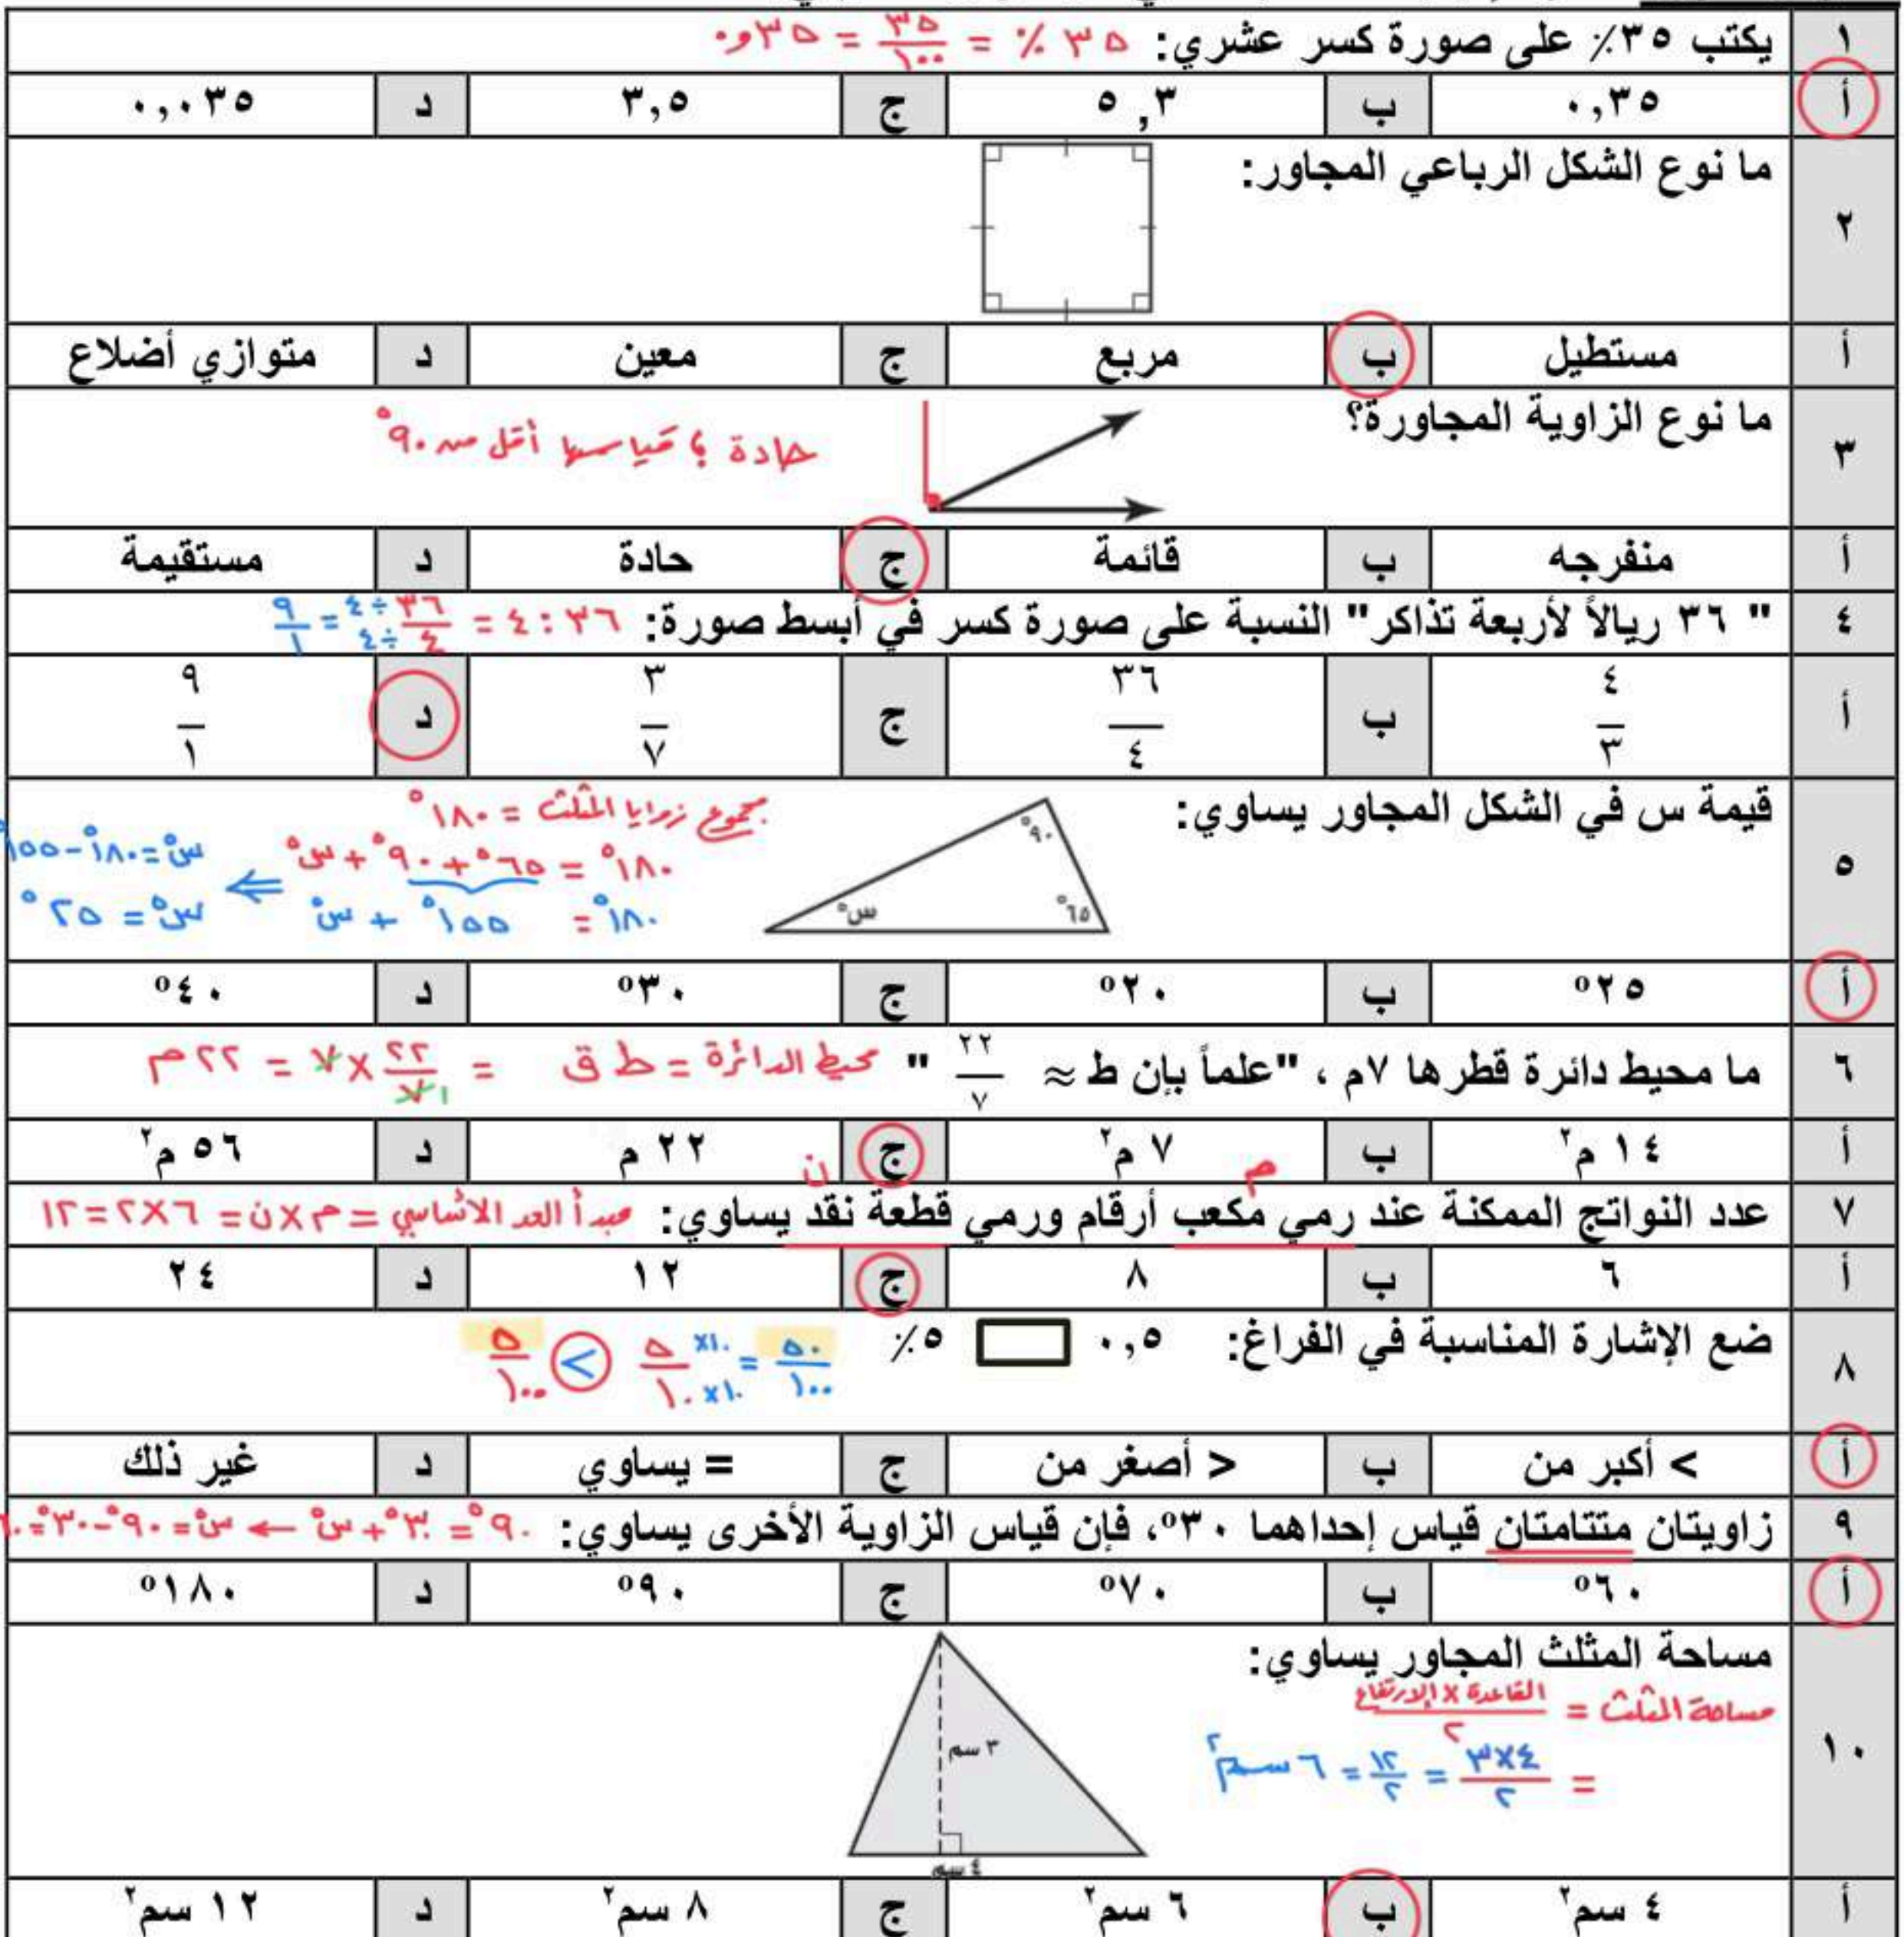 ١ يكتب ٣٥٪ على صورة كسر عشري: ٣٥ ٪ = ٣٥/١٠٠ = ٣٥و٠
أ ٠,٣٥ ب ٥,٣ ج ٣,٥ د ٠,٠٣٥
٢ ما نوع الشكل الرباعي المجاور:
أ مستطيل ب مربع ج معين د متوازي أضلاع
٣ ما نوع الزاوية المجاورة؟
حادة ؛ قياسها أقل من ٩٠°
أ منفرجه ب قائمة ج حادة د مستقيمة
٤ " ٣٦ ريالاً لأربعة تذاكر" النسبة على صورة كسر في أبسط صورة: ٣٦ : ٤ = ٣٦/٤ ÷٤/÷٤ = ٩/١
أ ٤/٣ ب ٣٦/٤ ج ٣/٧ د ٩/١
٥ قيمة س في الشكل المجاور يساوي:
٩٠°
٦٥°
س°
مجموع زوايا المثلث = ١٨٠°
١٨٠° = ٦٥° + ٩٠° + س°
١٨٠° = ١٥٥° + س°
⇐ س° = ١٨٠° - ١٥٥°
س° = ٢٥°
أ ٢٥° ب ٢٠° ج ٣٠° د ٤٠°
٦ ما محيط دائرة قطرها ٧م ، "علماً بإن ط ≈ ٢٢/٧ " محيط الدائرة = ط ق = ٢٢/٧ × ٧ = ٢٢ م
أ ١٤ م٢ ب ٧ م٢ ج ٢٢ م د ٥٦ م٢
م ن
٧ عدد النواتج الممكنة عند رمي مكعب أرقام ورمي قطعة نقد يساوي: مبدأ العد الاساسي = م × ن = ٦ × ٢ = ١٢
أ ٦ ب ٨ ج ١٢ د ٢٤
٨ ضع الإشارة المناسبة في الفراغ: ٠,٥ ٥٪
٥٠/١٠٠ = ٥/١٠ ×١٠/×١٠ > ٥/١٠٠
أ > أكبر من ب < أصغر من ج = يساوي د غير ذلك
٩ زاويتان متتامتان قياس إحداهما ٣٠°، فإن قياس الزاوية الأخرى يساوي: ٩٠° = ٣٠° + س° ← س° = ٩٠° - ٣٠° = ٦٠
أ ٦٠° ب ٧٠° ج ٩٠° د ١٨٠°
١٠ مساحة المثلث المجاور يساوي:
مساحة المثلث = القاعدة × الارتفاع/٢
= ٤×٣/٢ = ١٢/٢ = ٦ سم٢
٣ سم
٤ سم
أ ٤ سم٢ ب ٦ سم٢ ج ٨ سم٢ د ١٢ سم٢